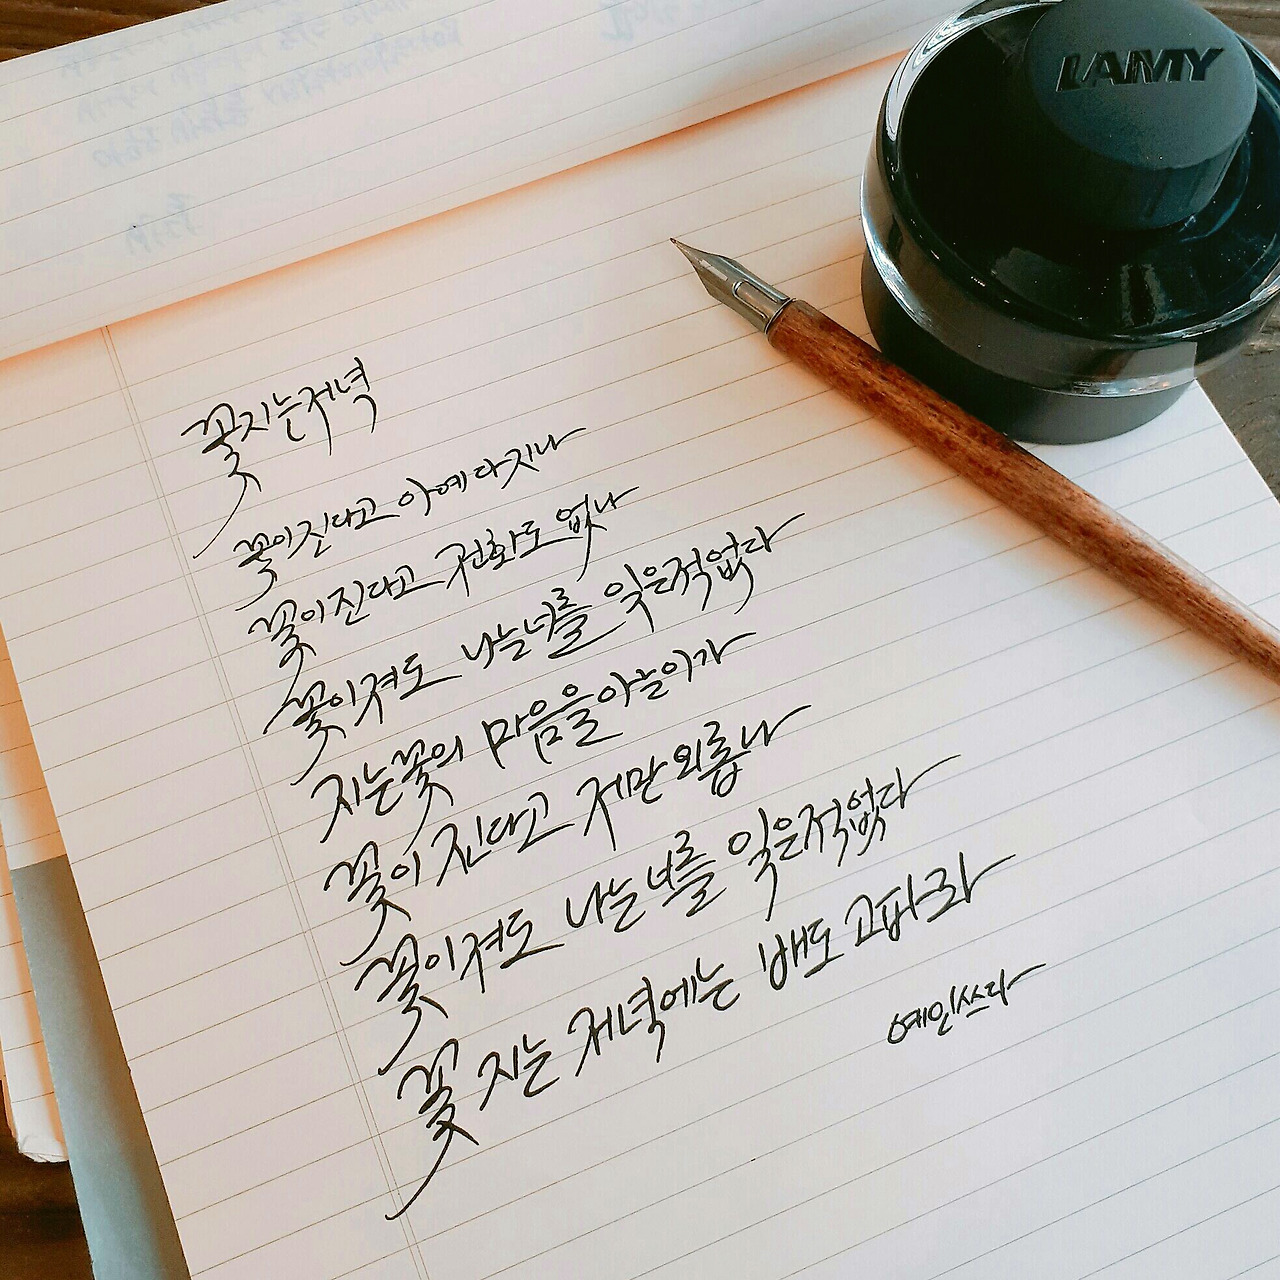 LAMY
꽃지는저녁
꽃이진다고 아예 다 지나
꽃이진다고 전화도 없나
꽃이져도 나는너를 잊은적없다
지는꽃의 마음을아는이가
꽃이 진다고 저만 외롭나
꽃이져도 나는너를 잊은적없다
꽃 지는 저녁에는 배도 고파라
예인쓰다